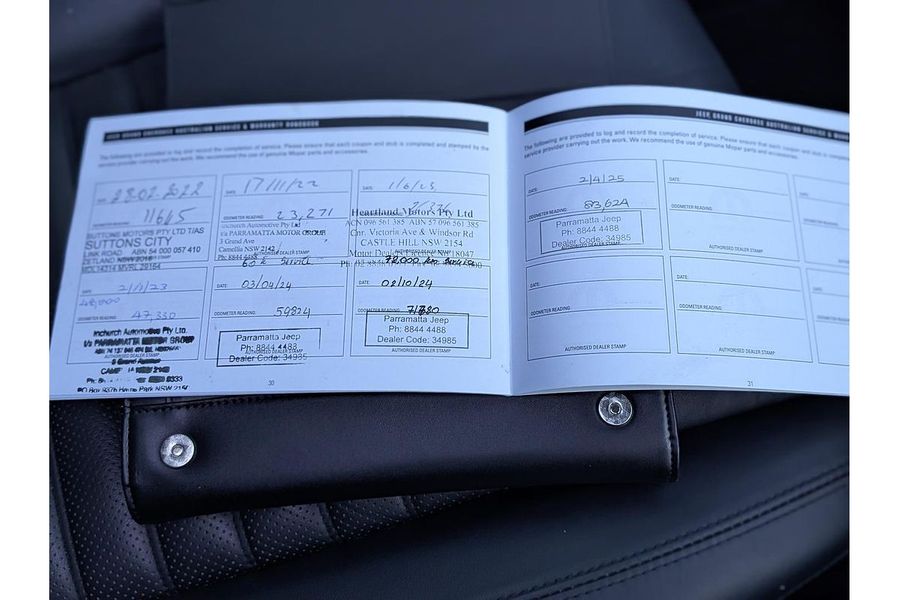 JEEP GRAND CHEROKEE AUSTRALIAN SERVICE & WARRANTY HANDBOOK
The following are provided to log and record the completion of service. Please ensure that each coupon and stub is completed and stamped by the
service provider carrying out the work. We recommend the use of genuine Mopar parts and accessories.
DATE: 28.02.2022
ODOMETER READING: 11645
SUTTONS MOTORS PTY LTD T/AS
SUTTONS CITY
LINK ROAD ABN 54 000 057 410
ZETLAND NSW 2016
MDL14314 MVRL 29154
DATE: 17/11/22
ODOMETER READING: 23,271
Inchurch Automotive Pty Ltd
t/a PARRAMATTA MOTOR GROUP
3 Grand Ave
Camellia NSW 2142
Ph: 8844 4488
AUTHORISED DEALER STAMP
DATE: 1/6/23
ODOMETER READING:
Heartland Motors Pty Ltd
ACN 096 561 385 ABN 57 096 561 385
Cnr. Victoria Ave & Windsor Rd
CASTLE HILL NSW 2154
Motor Dealers Licence No 18047
DATE: 2/11/23
48,000
ODOMETER READING: 47,330
Inchurch Automotive Pty Ltd.
t/a PARRAMATTA MOTOR GROUP
AUTHORISED DEALER STAMP
3 Grand Avenue
PO Box 9376 Harris Park NSW 2150
60 k Service
DATE: 03/04/24
ODOMETER READING: 59824
Parramatta Jeep
Ph: 8844 4488
AUTHORISED DEALER STAMP
Dealer Code: 34985
72,000 km Service
DATE: 02/10/24
ODOMETER READING:
Parramatta Jeep
Ph: 8844 4488
Dealer Code: 34985
AUTHORISED DEALER STAMP
30
JEEP GRAND CHEROKEE AUSTRALIAN SERVICE &
The following are provided to log and record the completion of service. Please ensure that each coupon and stub is completed
service provider carrying out the work. We recommend the use of genuine Mopar parts and accessories.
DATE: 2/4/25
ODOMETER READING: 83,624
Parramatta Jeep
Ph: 8844 4488
AUTHORISED DEALER STAMP
Dealer Code: 34985
DATE:
ODOMETER READING:
AUTHORISED DEALER STAMP
DATE:
ODOMETER READING:
DATE:
ODOMETER READING:
AUTHORISED DEALER STAMP
DATE:
ODOMETER READING:
AUTHORISED DEALER STAMP
DATE:
ODOMETER READING:
31